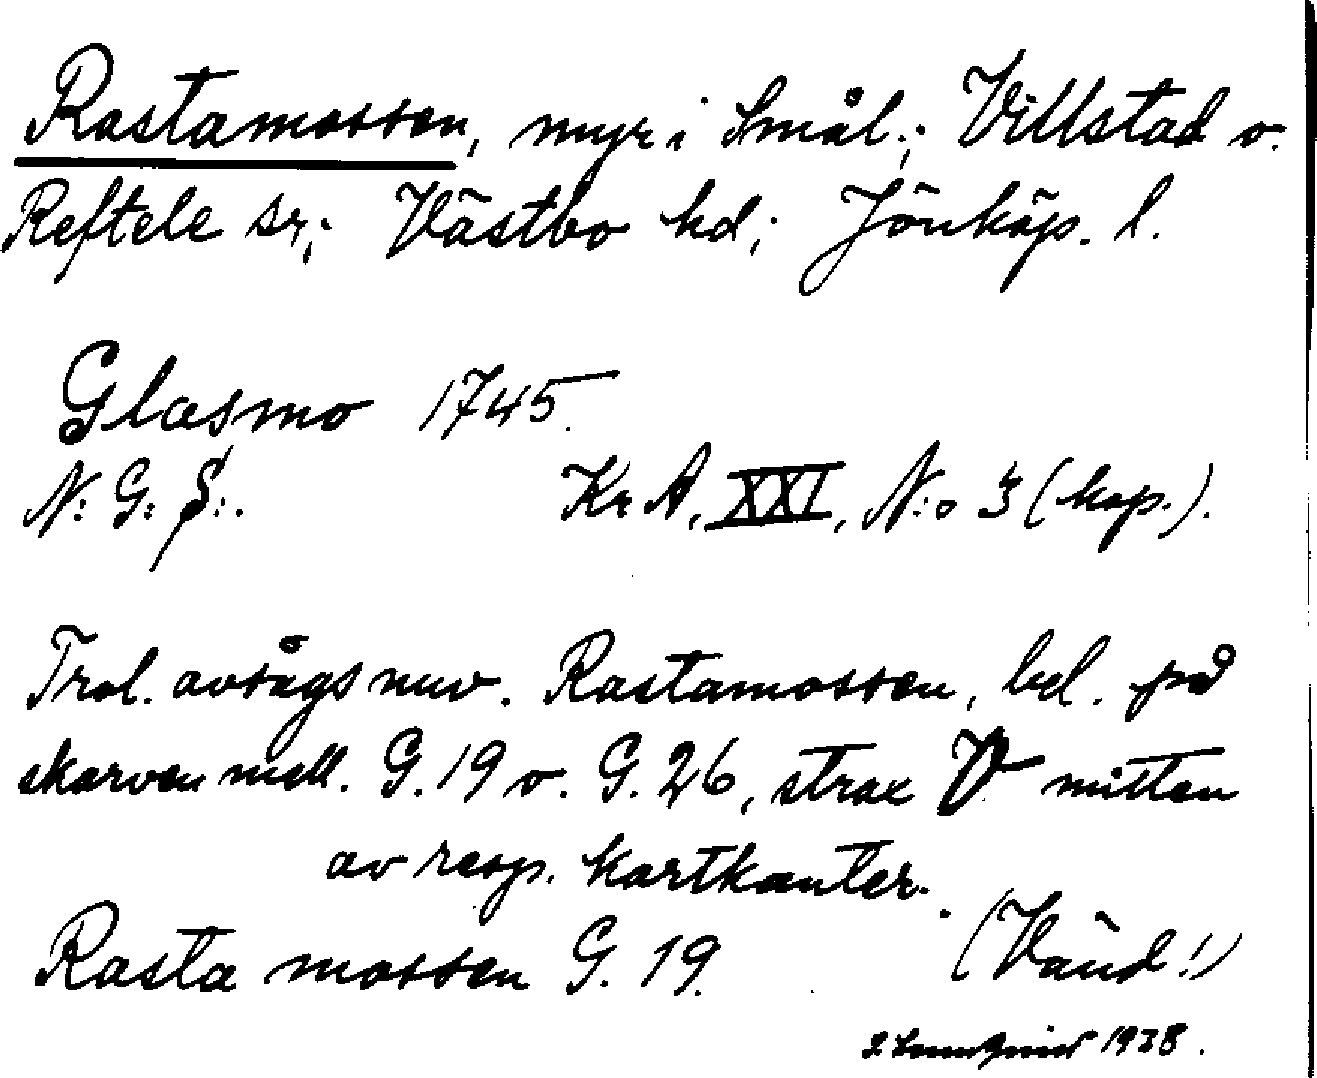 Rastamossen, myr i Smål.; Villstad o.
Reftele sr; Västbo hd; Jönköp. l.
Glasmo 1745.
N: G: S:.	KrA, XXI, N:o 3 (kop.).
Trol. avsågs nuv. Rastamossen, bel. på
skarven mell. G. 19 o. G. 26, strax V mitten
av resp. kartkanter.
Rasta mossen G. 19. (Vänd!)
1938.